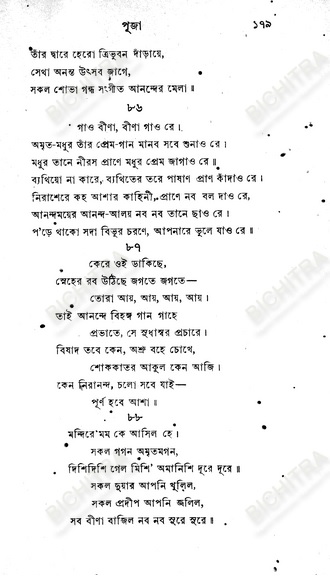 পূজা ১৭৯
তাঁর দ্বারে হেরো ত্রিভুবন দাঁড়ায়ে,
সেথা অনন্ত উৎসব জাগে,
সকল শোভা গন্ধ সংগীত আনন্দের মেলা॥
৮৬
গাও বীণা, বীণা গাও রে।
অমৃত-মধুর তাঁর প্রেম-গান মানব সবে শুনাও রে।
মধুর তানে নীরস প্রাণে মধুর প্রেম জাগাও রে॥
ব্যথিয়ো না কারে, ব্যথিতের তরে পাষাণ প্রাণ কাঁদাও রে।
নিরাশেরে কহ আশার কাহিনী, প্রাণে নব বল দাও রে,
আনন্দময়ের আনন্দ-আলয় নব নব তানে ছাও রে।
প'ড়ে থাকো সদা বিভুর চরণে, আপনারে ভুলে যাও রে॥
৮৭
কেরে ওই ডাকিছে,
স্নেহের রব উঠিছে জগতে জগতে—
তোরা আয়, আয়, আয়, আয়।
তাই আনন্দে বিহঙ্গ গান গাহে
প্রভাতে, সে সুধাস্বর প্রচারে।
বিষাদ তবে কেন, অশ্রু বহে চোখে,
শোককাতর আকুল কেন আজি।
কেন নিরানন্দ, চলো সবে যাই—
পূর্ণ হবে আশা॥
৮৮
মন্দিরে মম কে আসিল হে।
সকল গগন অমৃতমগন,
দিশিদিশি গেল মিশি' অমানিশি দূরে দূরে॥
সকল দুয়ার আপনি খুলিল,
সকল প্রদীপ আপনি জ্বলিল,
সব বীণা বাজিল নব নব সুরে সুরে॥
BICHITRA
BICHITRA
BICHITRA
BICHITRA
BICHITRA
BICHITRA